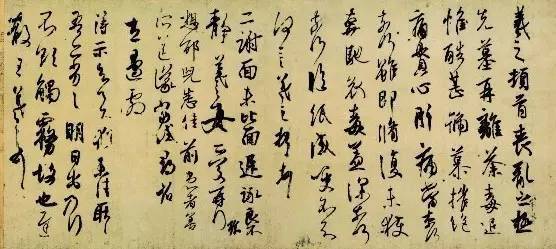 羲之頓首喪亂之極
先墓再離荼毒追
惟酷甚號慕摧絕
痛貫心肝痛當奈何
奈何雖即脩復未獲
奔馳哀毒益深奈何
奈何臨紙感哽不知
何言羲之頓首頓首
二謝面未比面遲詠良
靜羲之女愛再拜
想邵兒悉佳前患者善
所送議當試尋省
左邊劇
得示知足下猶未佳耿
耿吾亦劣劣明日出乃行
不欲觸霧故也遲
散王羲之頓首